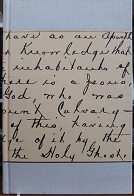 have as our Apostle
n Knowledge that
inhabitants of
ere is a Jesus
God who was
ount Calvary
of this, having
ge of it by the
the Holy Ghost.